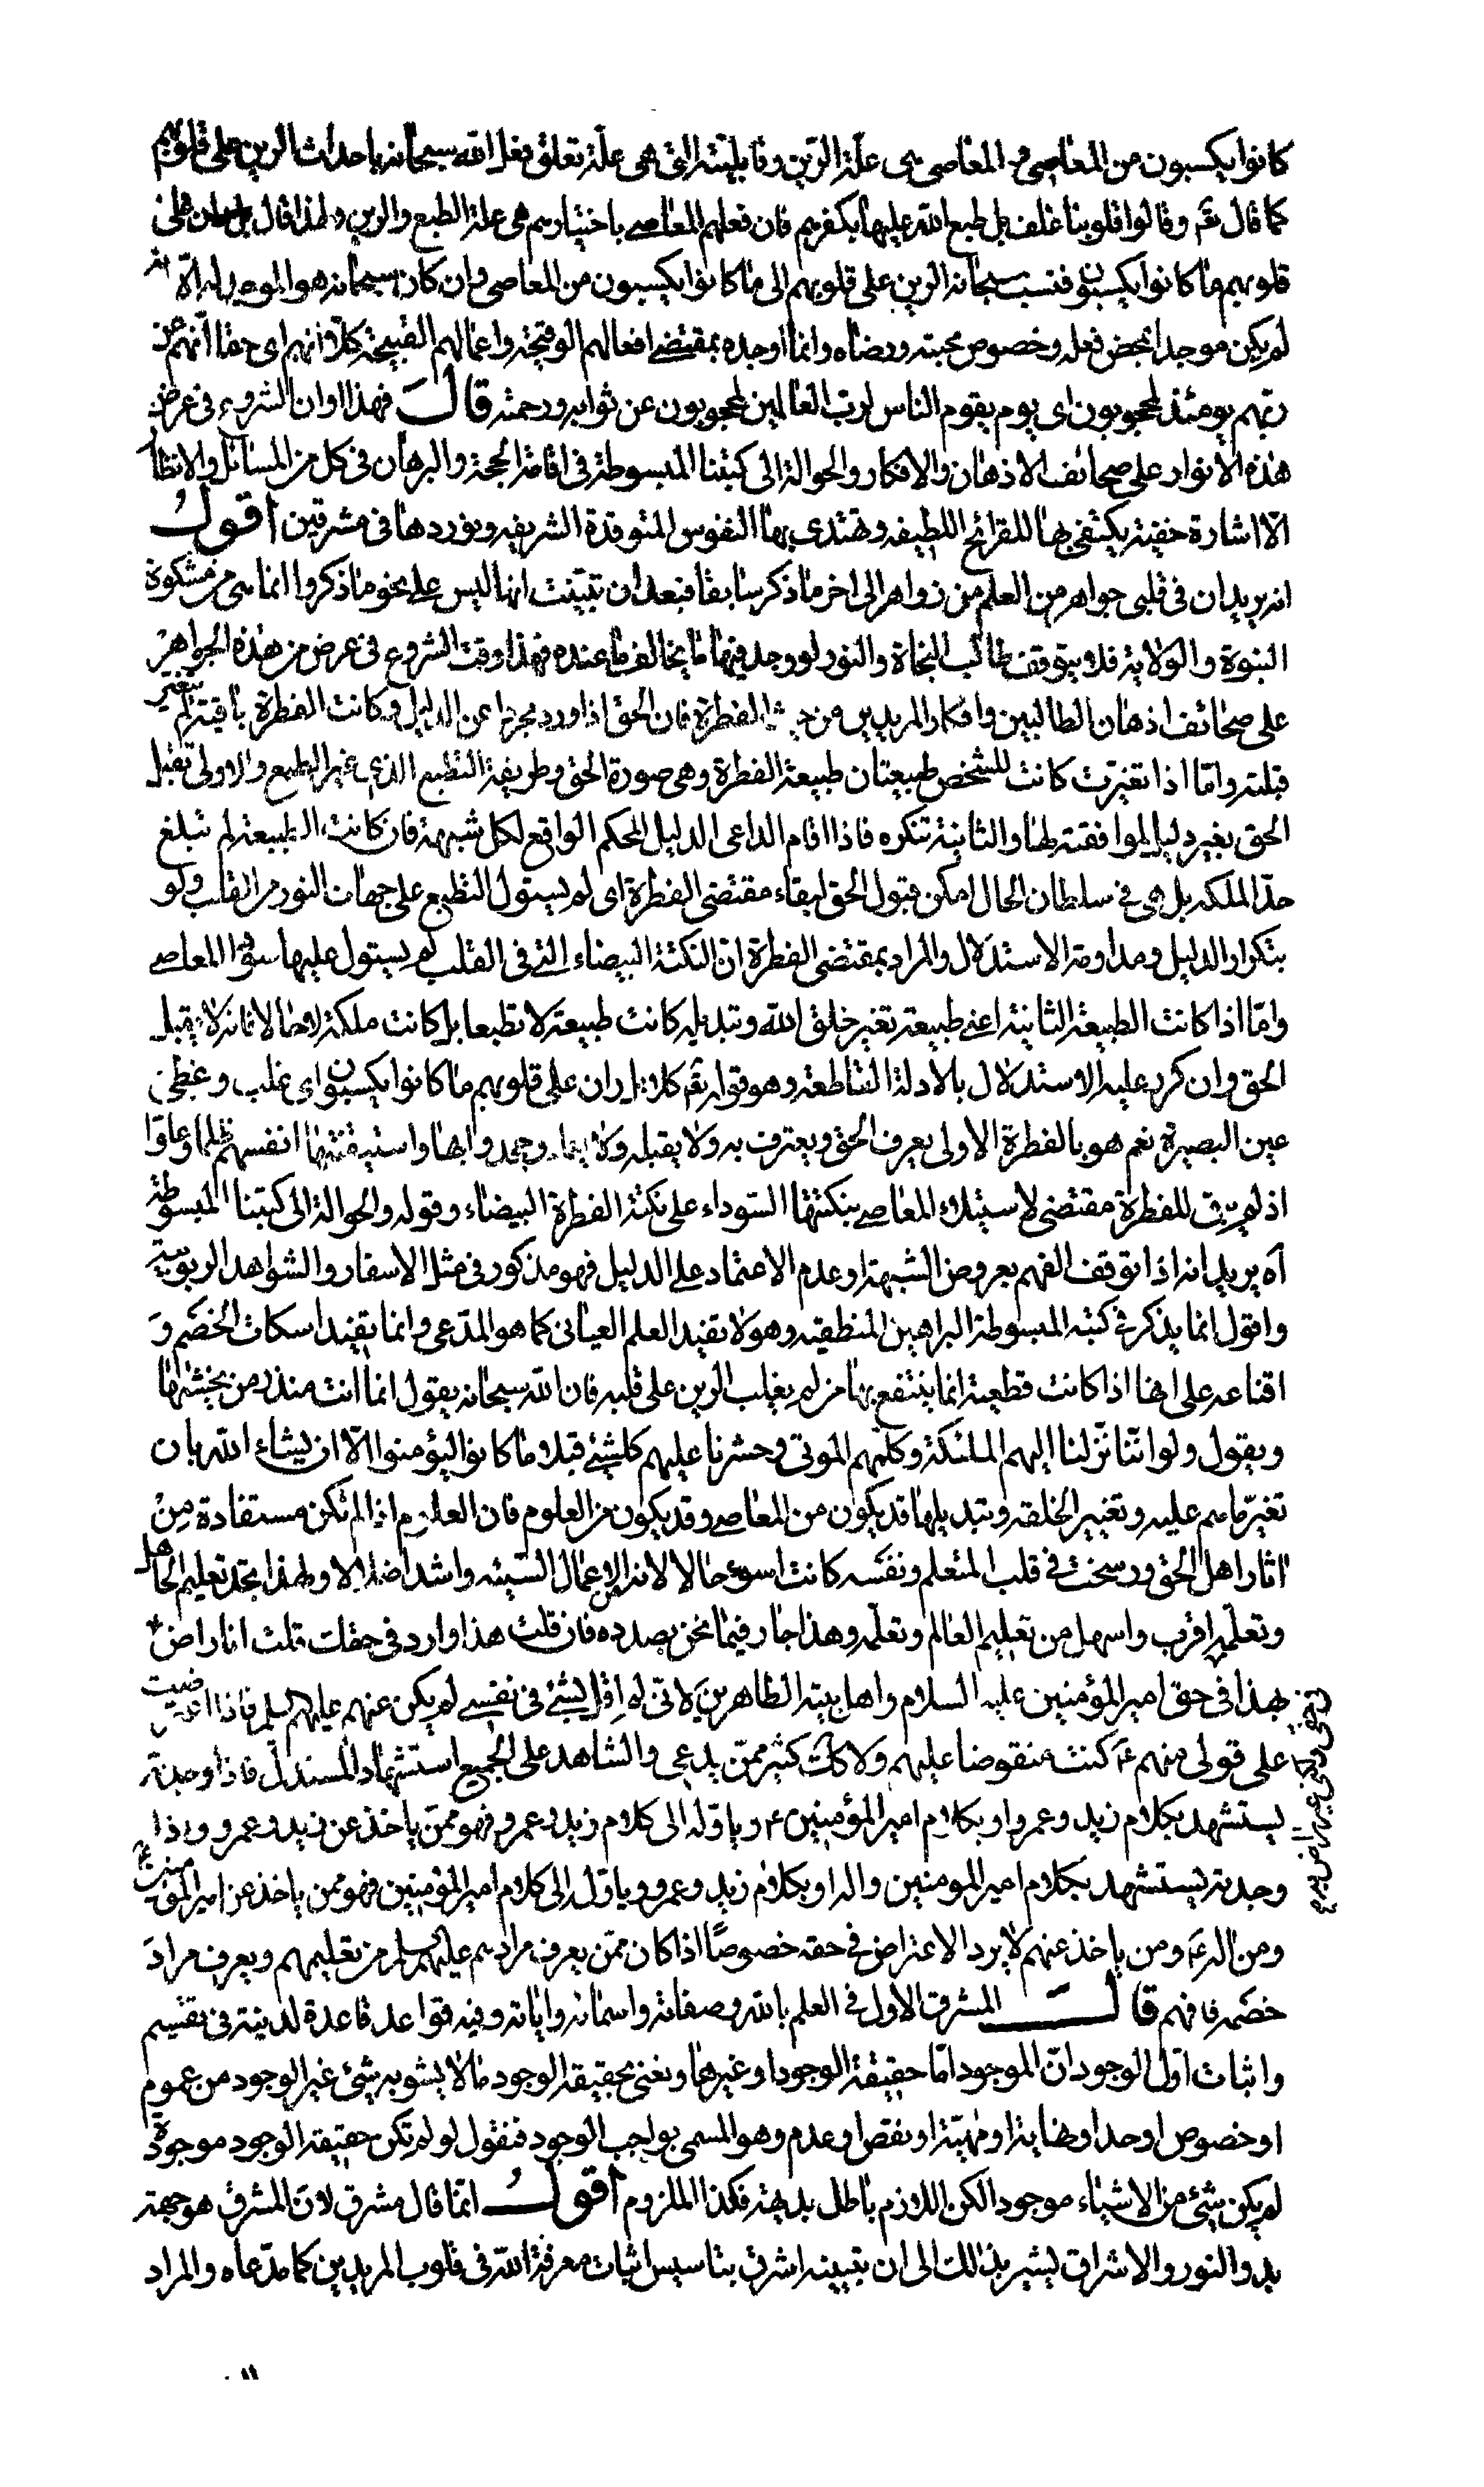 كانوا يكسبون من المعاصي فالمعاصي هي علة الرين وقابليته التي هي علة تعلق فعل الله سبحانه باحداث الرين على قلوبهم
كما قال تعالى وقالوا قلوبنا غلف بل طبع الله عليها بكفرهم فان فعلهم المعاصي باختيارهم هي علة الطبع والرين ولهذا قال بل ران على
قلوبهم ما كانوا يكسبون فنسب سبحانه الرين على قلوبهم الى ما كانوا يكسبون من المعاصي وان كان سبحانه هو الموجد له الا انه
لم يكن موجدا بمحض فعله وخصوص محبته ورضاه وانما اوجده بمقتضى افعالهم الوقيحة واعمالهم القبيحة كلا انهم اى حقا انهم عن
ربهم يومئذ لمحجوبون اى يوم يقوم الناس لرب العالمين لمحجوبون عن ثوابه ورحمته قال فهذا اوان الشروع في عرض
هذه الانوار على صحائف الاذهان والافكار والحوالة الى كتبنا المبسوطة في اقامة الحجة والبرهان في كل من المسائل والانظار
الا اشارة خفية يكتفي بها للقرائح اللطيفة وتهتدي بها النفوس المتوقدة الشريفه ونوردها في مشرقين اقول
انه يريد ان في قلبي جواهر من العلم من زواهر الى اخر ما ذكر سابقا فبعد ان تبينت انها ليس على نحو ما ذكروا انما هي من مشكوة
النبوة والولاية فلا يتوقف طالب النجاة والنور لو وجد فيها ما يخالف ما عنده فهذا وقت الشروع في عرض من هذه الجواهر
على صحائف اذهان الطالبين وافكار المريدين من حيث الفطرة فان الحق اذا ورد مجردا عن الدليل وكانت الفطرة باقية لم تتغير
قبلته واما اذا تغيرت كانت للشخص طبيعتان طبيعة الفطرة وهي صورة الحق وطريقة التطبع الذي غير الطبع والاولى تقبل
الحق بغير دليل لموافقته لها والثانية تنكره فاذا اقام الداعي الدليل المحكم الواقع لكل شبهة فان كانت الطبيعة لم تبلغ
حد الملكة بل هي في سلطان الحال امكن قبول الحق لبقاء مقتضى الفطرة اى لم يستول التطبع على جهات النور من القلب ولو
بتكرار الدليل ومداومة الاستدلال والمراد بمقتضى الفطرة ان النكتة البيضاء التي في القلب لم يستول عليها المعاصي
واما اذا كانت الطبيعة الثانية اعني طبيعة تغيير خلق الله وتبديله كانت طبيعة لا تطبعا بل كانت ملكة لا حالا فانه لا يقبل
الحق وان كرر عليه الاستدلال بالادلة القاطعة وهو قوله تعالى كلا بل ران على قلوبهم ما كانوا يكسبون اى غلب وغطى
عين البصيرة نعم هو بالفطرة الاولى يعرف الحق ويعترف به ولا يقبله وجحدوا بها واستيقنتها انفسهم ظلما وعلوا
اذ لم يبق للفطرة مقتضى لاستيلاء المعاصي بنكتتها السوداء على نكتة الفطرة البيضاء وقوله والحوالة الى كتبنا المبسوطة
آه يريد انه اذا توقف الفهم بعروض الشبهة او عدم الاعتماد على الدليل فهو مذكور في مثل الاسفار والشواهد الربوبية
واقول انما يذكر في كتبه المبسوطة البراهين المنطقية وهو لا يفيد العلم العياني كما هو المدعى وانما يفيد اسكات الخصم و
اقناعه على انها اذا كانت قطعية انما ينتفع بها من لم يغلب الرين على قلبه فان الله سبحانه يقول انما انت منذر من يخشيها
ويقول ولو اننا نزلنا اليهم الملئكة وكلمهم الموتى وحشرنا عليهم كل شئ قبلا ما كانوا ليؤمنوا الا ان يشاء الله بان
تغير ما هم عليه وتغيير الخلقة وتبديلها قد يكون من المعاصي وقد يكون من العلوم فان العلوم اذا لم تكن مستفادة من
اثار اهل الحق ورسخت في قلب المتعلم ونفسه كانت اسوء حالا لانه من الاعمال السيئة واشد اضلالا ولهذا تجد تعليم الجاهل
وتعلمه اقرب واسهل من تعليم العالم وتعلمه وهذا جار فيما نحن بصدده فان قلت هذا وارد في حقك قلت انا راض
بهذا في حق امير المؤمنين عليه السلام واهل بيته الطاهرين لاني لم اقل بشئ في نفسي لم يكن عنهم عليهم السلم فاذا اعترضت
على قولي منهم ع كنت منقوضا عليهم ولا كك كثير ممن يدعي والشاهد على الجميع استشهاد المستدل فاذا وجدته
يستشهد بكلام زيد وعمرو او بكلام امير المؤمنين ع وياوله الى كلام زيد وعمرو فهو ممن ياخذ عن زيد وعمرو واذا
وجدته يستشهد بكلام امير المومنين واله او بكلام زيد وعمرو وياوله الى كلام امير المؤمنين فهو ممن ياخذ عن امير المؤمنين ع
ومن اله ع ومن ياخذ عنهم لا يرد الاعتراض في حقه خصوصا اذا كان ممن يعرف مرادهم عليهم السلم من تعليمهم ويعرف مراد
خصمه فافهم قال المشرق الاول في العلم بالله وصفاته واسمائه واياته وفيه قواعد قاعدة لدنية في تقسيم
واثبات اول الوجود ان الموجود اما حقيقة الوجود او غيرها ونعني بحقيقة الوجود ما لا يشوبه شئ غير الوجود من عموم
او خصوص او حد او نهاية او مهية او نقص او عدم وهو المسمى بواجب الوجود فنقول لو لم تكن حقيقة الوجود موجودة
لم يكن شئ من الاشياء موجودا لكن اللازم باطل بديهة فكذا الملزوم اقول انما قال مشرق لان المشرق هو جهة
بدو النور والاشراق ليشير بذلك الى ان تبيينه اشرق بتاسيس اثبات معرفة الله في قلوب المريدين كما مدعاه والمراد
١١